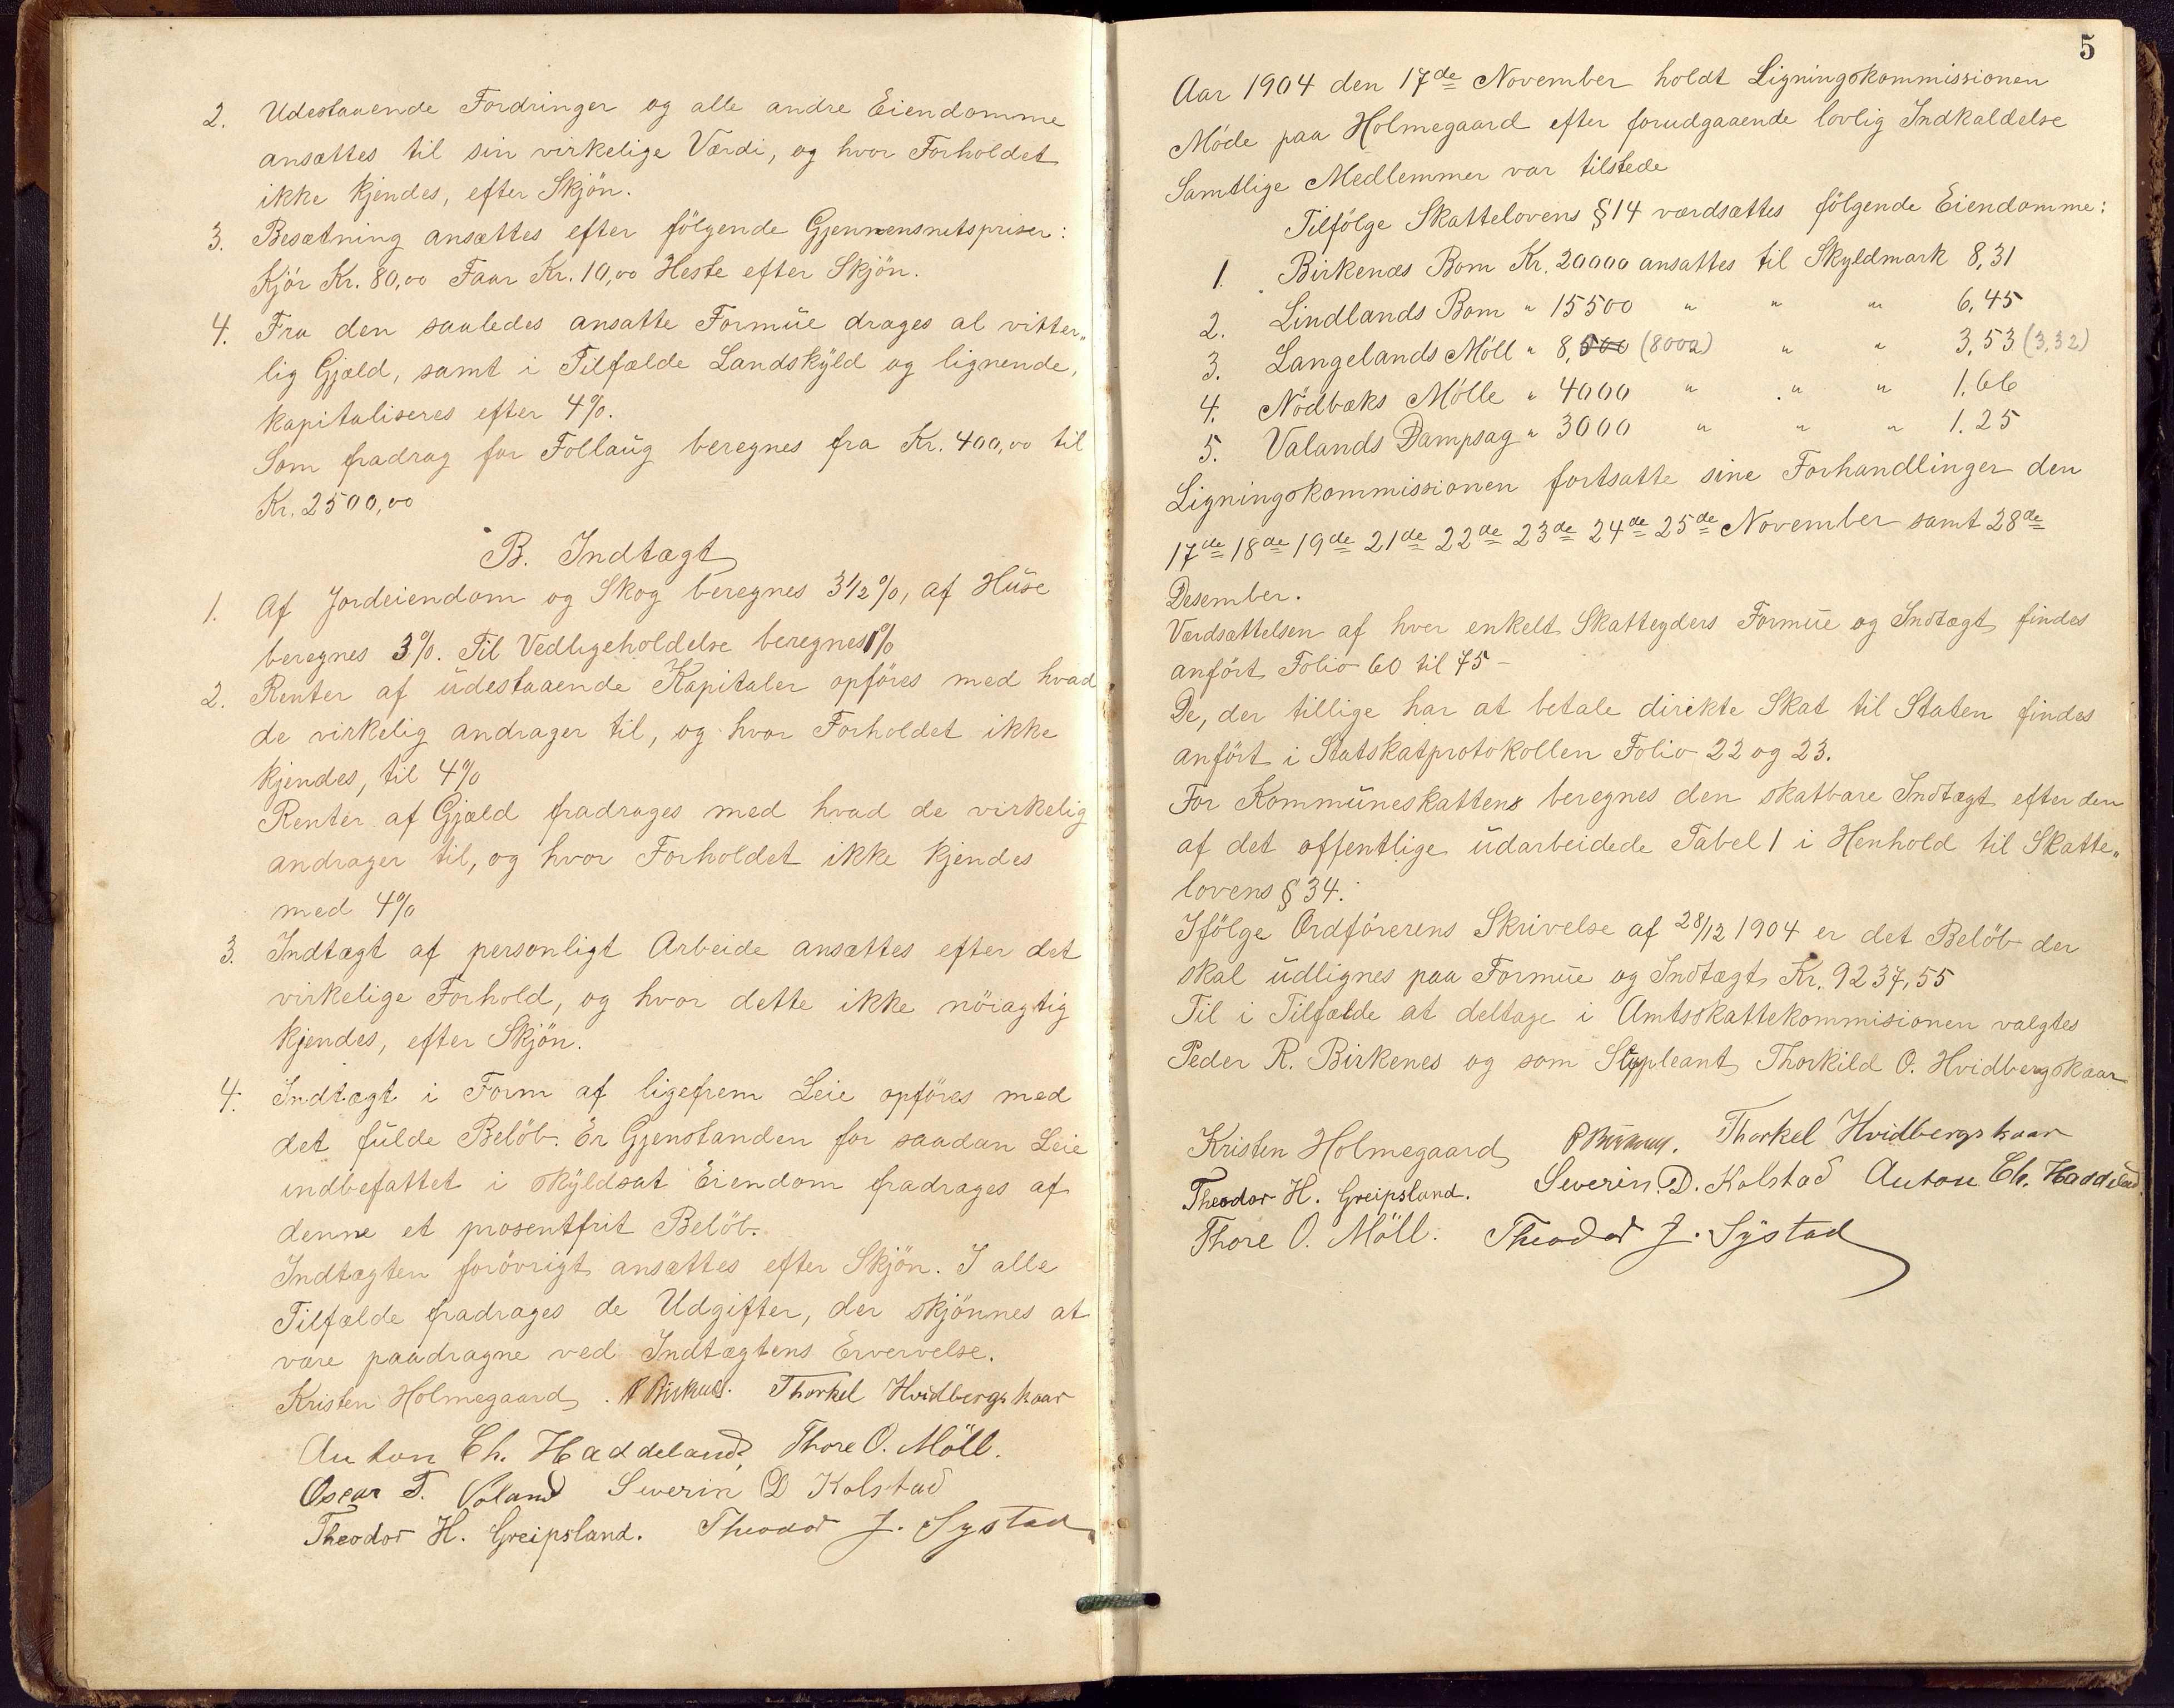 2. Udestaaende Fordringer og alle andre Eiendomme
ansættes til sin virkelige Værdi, og hvor Forholdet
ikke kjendes, efter Skjön.
3. Besætning ansættes efter fölgende Gjennensnetspriser:
Kjör Kr. 80,00 Faar Kr. 10,00 Heste efter Skjön.
4. Fra den saaledes ansatte Formue drages al vitter„
lig Gjæld, samt i Tilfælde Landskyld og lignende,
kapitaliseres efter 4%.
Som fradrag for Follaug beregnes fra Kr. 400,00 til
Kr. 2500,00
B. Indtægt
1. Af Jordeiendom og Skog beregnes 3½%, af Huse
beregnes 3%. Til Vedligeholdelse beregnes 1%
2. Renter af udestaaende Kapitaler opföres med hvad
de virkelig andrager til, og hvor Forholdet ikke
kjendes, til 4%
Renter af Gjæld fradrages med hvad de virkelig
andrager til, og hvor Forholdet ikke kjendes
med 4%
3. Indtægt af personligt Arbeide ansættes efter det
virkelige Forhold, og hvor dette ikke nöiagtig
kjendes, efter Skjön.
4. Indtægt i Form af ligefrem Leie opföres med
det fulde Belöb. Er Gjenstanden for saadan Leie
indbefattet i skyldsat Eiendom fradrages af
denne et prosentfrit Belöb.
Indtægten forövrigt ansættes efter Skjön. I alle
Tilfælde fradrages de Udgifter, der skjönnes at
være paadragne ved Indtægtens Ervervelse.
Kristen Holmegaard P Birkens. Thorkel Hvidbergskaar
Anton Ch. Haddeland, Thore O. Möll.
Oscar T. Valand Severin D Kolstad
Theodor H. Greipsland. Theodor J. Systad
5
Aar 1904 den 17de November holdt Ligningskommissionen
Möde paa Holmegaard efter forudgaaende lovlig Indkaldelse
Samtlige Medlemmer var tilstede
Tilfölge Skattelovens § 14 værdsættes fölgende Eiendomme:
1. Birkenæs Bom Kr. 20000 ansattes til Skyldmark 8,31
2. Lindlands Bom " 15500 " " " 6,45
3. Langelands Möll " 8,500 (8000) " " 3,53 (3,32)
4. Nödbæks Mölle " 4000 " " " 1.66
5. Valands Dampsag " 3000 " " " 1.25
Ligningskommissionen fortsatte sine Forhandlinger den
17de 18de 19de 21de 22de 23de 24de 25de November samt 28de
Desember.
Værdsættelsen af hver enkelt Skatteyders Formue og Indtægt findes
anfört Folio 60 til 75 –
De, der tillige har at betale direkte Skat til Staten findes
anfört i Statskatprotokollen Folio 22 og 23.
For Kommuneskattens beregnes den skatbare Indtægt efter den
af det offentlige udarbeidede Tabel 1 i Henhold til Skatte„
lovens § 34.
Ifölge Ordförerens Skrivelse af 28/12 1904 er det Belöb der
skal udlignes paa Formue og Indtægt Kr. 9237,55
Til i Tilfælde at deltage i Amtsskattekommisionen valgtes
Peder R. Birkenes og som Suppleant Thorkild O. Hvidbergskaar
Kristen Holmegaard Thorkel Hvidbergskaar
Theodor H. Greipsland. Severin. D. Kolstad Anton Ch. Haddeland.
Thore O. Möll. Theodor J. Systad